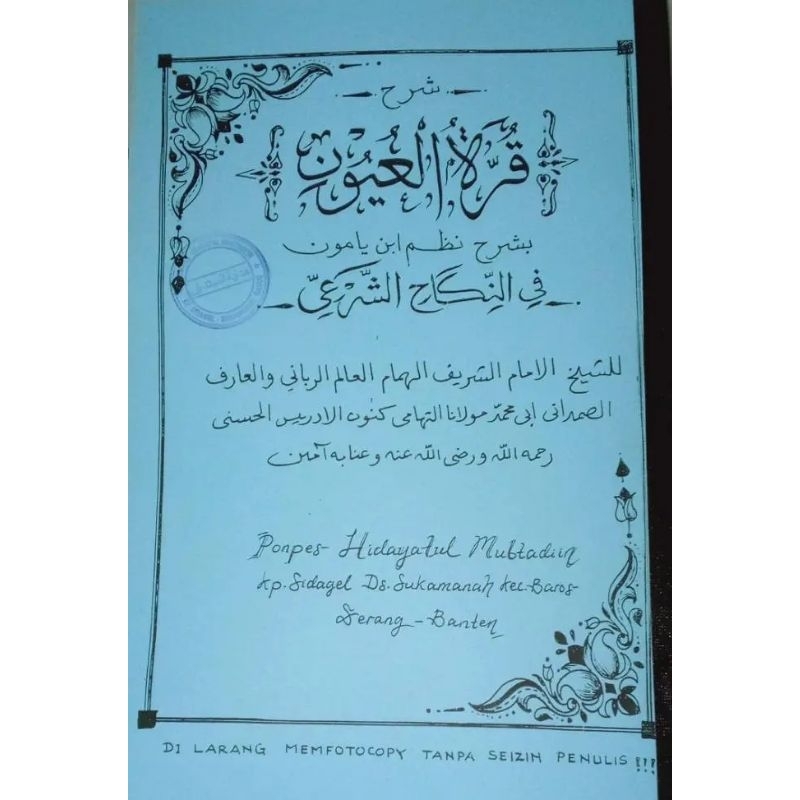 شرح
قُرَّةُ الْعُيُونِ
بشرح نظم ابن يامون
فِي النِّكَاحِ الشَّرْعِيِّ
للشيخ الامام الشريف الهمام العالم الرباني والعارف
الصمداني ابي محمد مولانا التهامي كنون الادريس الحسني
رحمه الله ورضى الله عنه وعنا به آمين
Ponpes- Hidayatul Mubtadiin
Kp. Sidagel Ds. Sukamanah Kec-Baros-
Serang - Banten
DI LARANG MEMFOTOCOPY TANPA SEIZIN PENULIS !!!